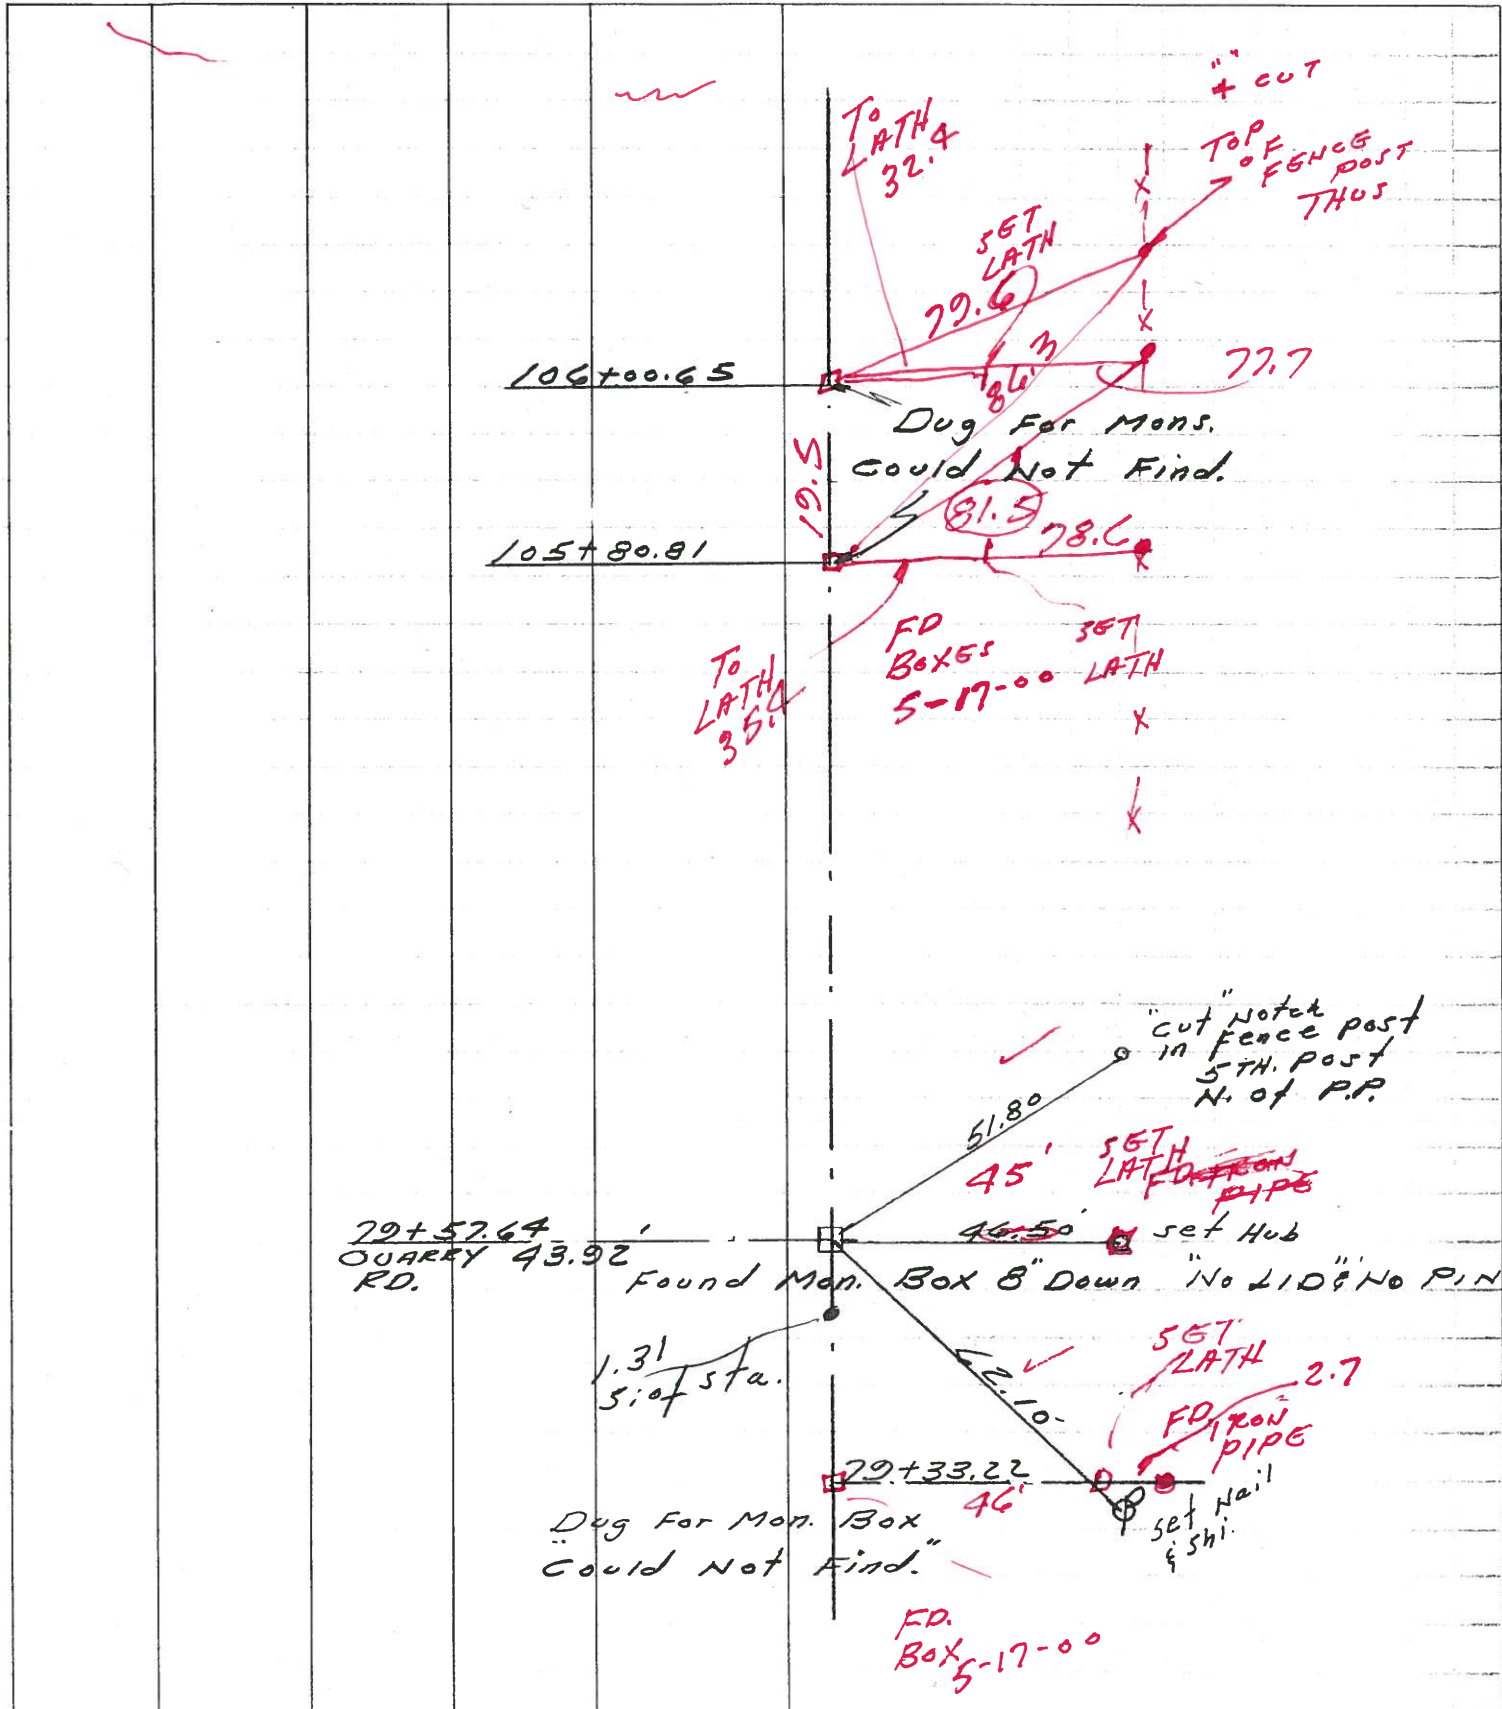 "+" CUT
TOP OF
FENCE
POST
THUS
TO
LATH
32.4
SET
LATH
79.6
106+00.65
86.3
77.7
Dug For Mons.
Could Not Find.
19.5
81.5
78.6
105+80.81
TO
LATH
35.4
FD
BOXES
5-17-00
SET
LATH
"Cut" Notch
in Fence post
5TH. Post
N. of P.P.
51.80
45'
SET
LATH
FD. IRON
PIPE
79+57.64
QUARRY 43.92'
RD.
46.50'
set Hub
Found Mon. Box 8" Down "No LID" & No PIN
1.31
S. of sta.
62.10
SET
LATH
2.7
FD. IRON
PIPE
79+33.22
46'
set Nail
& Shi.
Dug For Mon. Box
"Could Not Find."
FD.
BOX
5-17-00